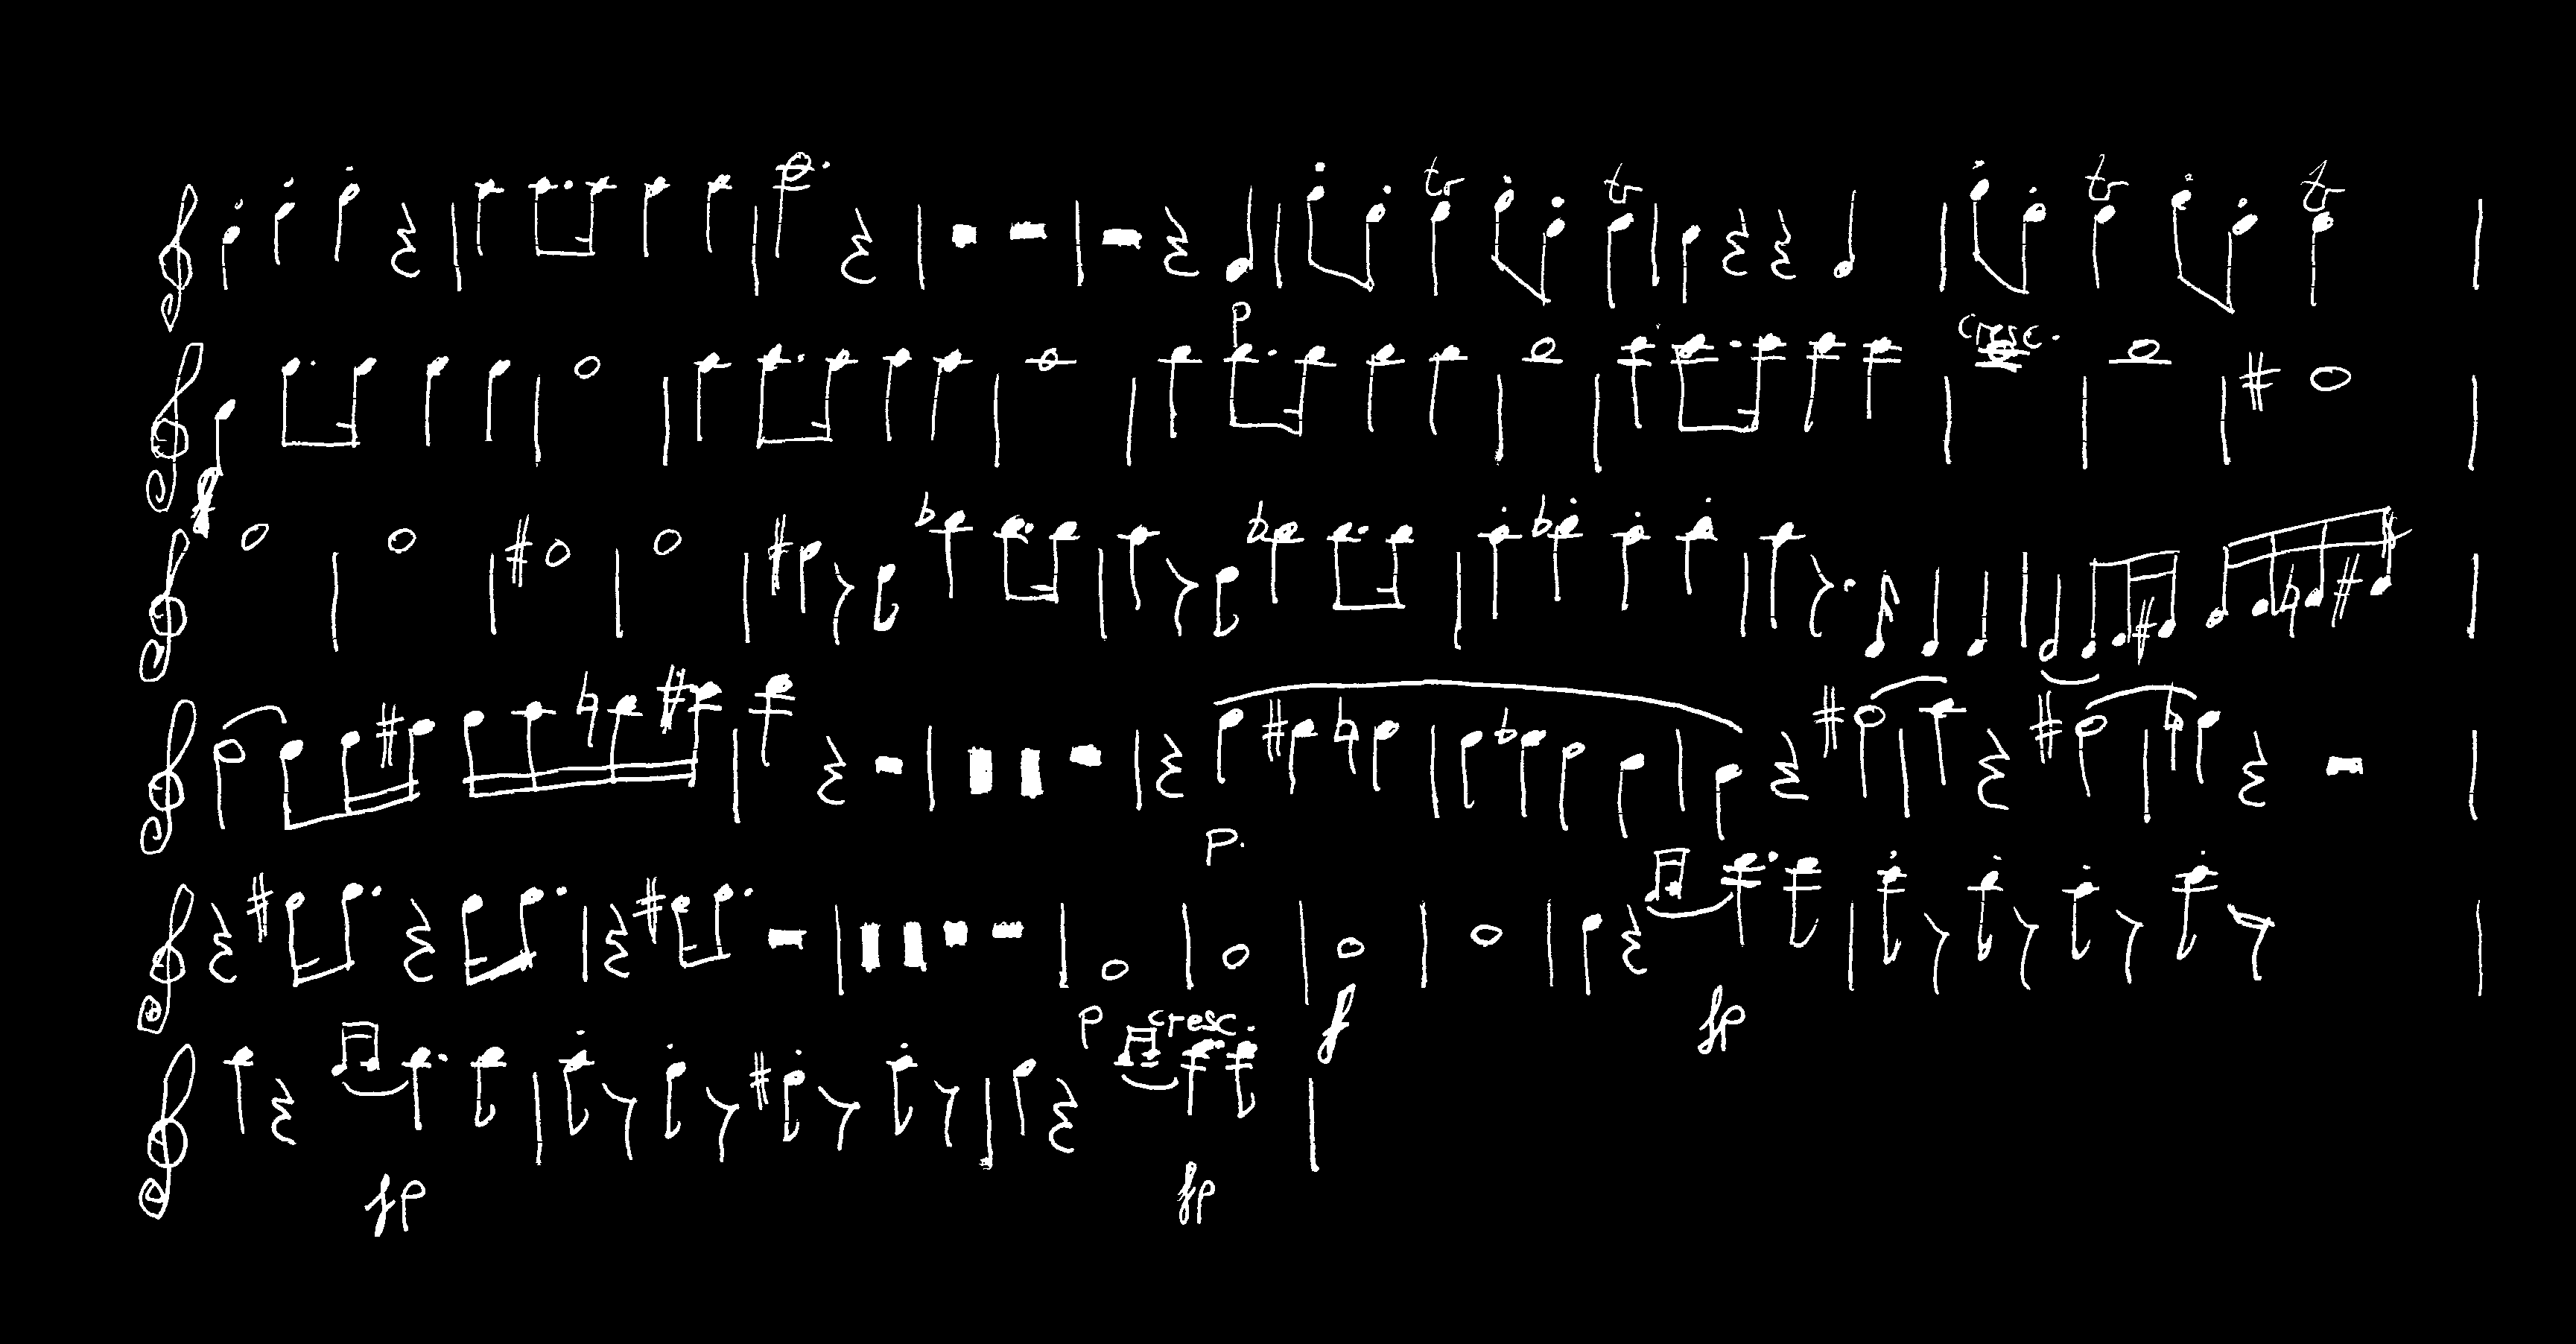 tr tr tr tr
p cresc.
f
p.
p cresc. f fp
fp fp